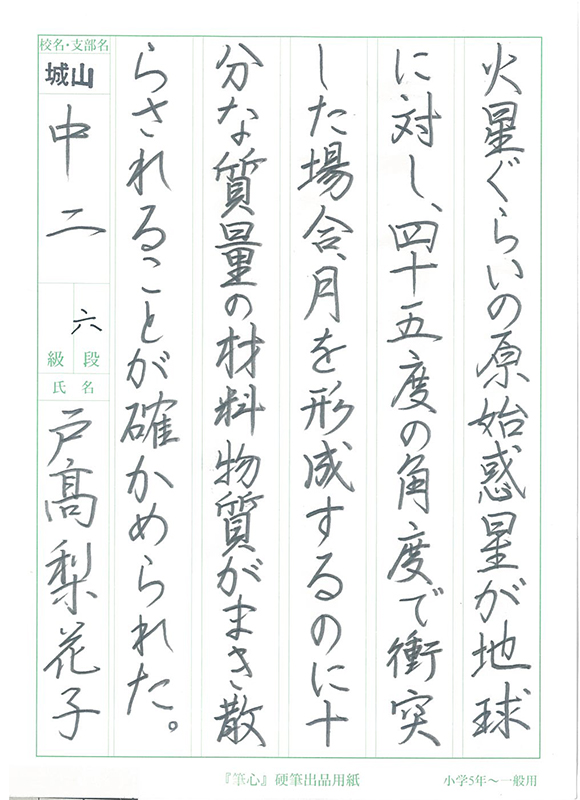 火星ぐらいの原始惑星が地球
に対し、四十五度の角度で衝突
した場合、月を形成するのに十
分な質量の材料物質がまき散
らされることが確かめられた。
校名・支部名
城山
中二
六
級 段
氏名
戸髙梨花子
『筆心』硬筆出品用紙
小学5年～一般用